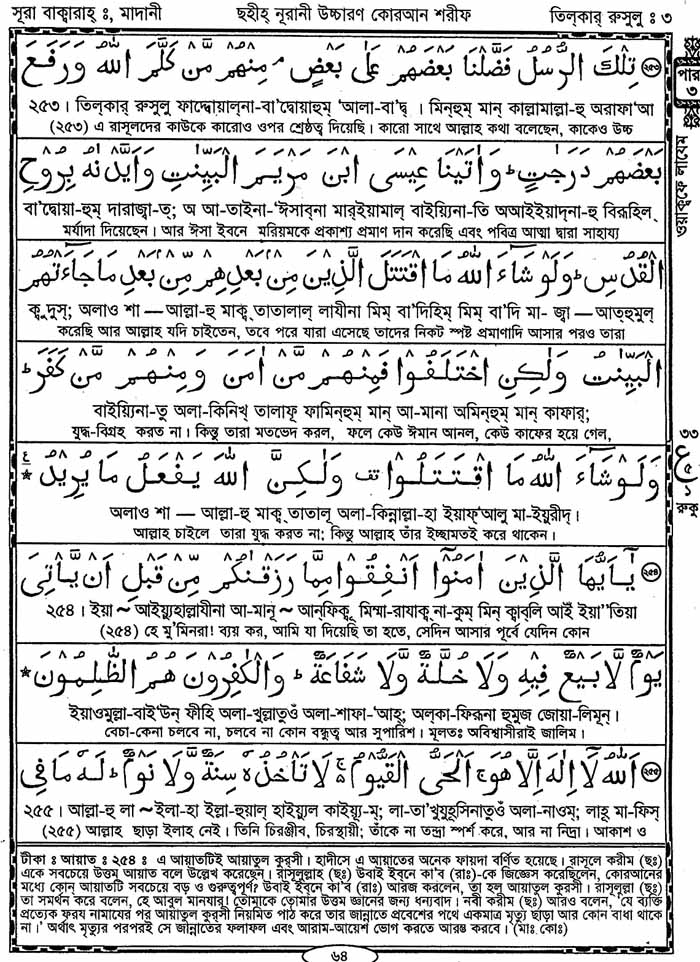 সূরা বাক্বারাহ্ ঃ, মাদানী ছহীহ্ নূরানী উচ্চারণ কোরআন শরীফ তিল্কার্ রুসুলু ঃ ৩
تِلْكَ الرُّسُلُ فَضَّلْنَا بَعْضَهُمْ عَلٰى بَعْضٍ ۘ مِنْهُمْ مَّنْ كَلَّمَ اللّٰهُ وَرَفَعَ
২৫৩। তিল্কার্ রুসুলু ফাদ্দ্বোয়াল্না-বা'দ্বোয়াহুম্ 'আলা-বা'দ্ব । মিন্হুম্ মান্ কাল্লামাল্লা-হু অরাফা'আ
(২৫৩) এ রাসূলদের কাউকে কারোও ওপর শ্রেষ্ঠত্ব দিয়েছি। কারো সাথে আল্লাহ কথা বলেছেন, কাকেও উচ্চ
بَعْضَهُمْ دَرَجٰتٍ ؕ وَاٰتَيْنَا عِيْسَى ابْنَ مَرْيَمَ الْبَيِّنٰتِ وَاَيَّدْنٰهُ بِرُوْحِ
বা'দ্বোয়া-হুম্ দারাজ্বা-ত্; অ আ-তাইনা-'ঈসাব্না মার্ইয়ামাল্ বাইয়্যিনা-তি অআইইয়াদ্না-হু বিরূহিল্
মর্যাদা দিয়েছেন। আর ঈসা ইবনে মরিয়মকে প্রকাশ্য প্রমাণ দান করেছি এবং পবিত্র আত্মা দ্বারা সাহায্য
الْقُدُسِ ؕ وَلَوْ شَآءَ اللّٰهُ مَا اقْتَتَلَ الَّذِيْنَ مِنْۢ بَعْدِهِمْ مِّنْۢ بَعْدِ مَا جَآءَتْهُمُ
ক্বুদুস্; অলাও শা — আল্লা-হু মাক্ব্ তাতালাল্ লাযীনা মিম্ বা'দিহিম্ মিম্ বা'দি মা- জ্বা — আত্হুমুল্
করেছি আর আল্লাহ যদি চাইতেন, তবে পরে যারা এসেছে তাদের নিকট স্পষ্ট প্রমাণাদি আসার পরও তারা
الْبَيِّنٰتُ وَلٰكِنِ اخْتَلَفُوْا فَمِنْهُمْ مَّنْ اٰمَنَ وَمِنْهُمْ مَّنْ كَفَرَ ؕ
বাইয়্যিনা-তু অলা-কিনিখ্ তালাফূ ফামিন্হুম্ মান্ আ-মানা অমিন্হুম্ মান্ কাফার্;
যুদ্ধ-বিগ্রহ করত না। কিন্তু তারা মতভেদ করল, ফলে কেউ ঈমান আনল, কেউ কাফের হয়ে গেল,
وَلَوْ شَآءَ اللّٰهُ مَا اقْتَتَلُوْا قف وَلٰكِنَّ اللّٰهَ يَفْعَلُ مَا يُرِيْدُ
অলাও শা — আল্লা-হু মাক্ব্ তাতালূ অলা-কিন্নাল্লা-হা ইয়াফ্'আলু মা-ইয়ুরীদ্।
আল্লাহ চাইলে তারা যুদ্ধ করত না; কিন্তু আল্লাহ তাঁর ইচ্ছামতই করে থাকেন।
يٰۤاَيُّهَا الَّذِيْنَ اٰمَنُوْۤا اَنْفِقُوْا مِمَّا رَزَقْنٰكُمْ مِّنْ قَبْلِ اَنْ يَّاْتِيَ
২৫৪। ইয়া ~ আইয়্যুহাল্লাযীনা আ-মানূ ~ আন্ফিক্বূ মিম্মা-রাযাক্ব্ না-কুম্ মিন্ ক্বাব্লি আইঁ ইয়া''তিয়া
(২৫৪) হে মু'মিনরা! ব্যয় কর, আমি যা দিয়েছি তা হতে, সেদিন আসার পূর্বে যেদিন কোন
يَوْمٌ لَّا بَيْعٌ فِيْهِ وَلَا خُلَّةٌ وَّلَا شَفَاعَةٌ ؕ وَالْكٰفِرُوْنَ هُمُ الظّٰلِمُوْنَ
ইয়াওমুল্লা-বাই'উন্ ফীহি অলা-খুল্লাতুওঁ অলা-শাফা-'আহ্; অল্কা-ফিরূনা হুমুজ্ জোয়া-লিমূন্।
বেচা-কেনা চলবে না, চলবে না কোন বন্ধুত্ব আর সুপারিশ। মূলতঃ অবিশ্বাসীরাই জালিম।
اَللّٰهُ لَاۤ اِلٰهَ اِلَّا هُوَ ۚ اَلْحَىُّ الْقَيُّوْمُ ۬ۚ لَا تَاْخُذُهٗ سِنَةٌ وَّلَا نَوْمٌ ؕ لَهٗ مَا فِى
২৫৫। আল্লা-হু লা ~ ইলা-হা ইল্লা-হুয়াল্ হাইয়্যুল কাইয়্যূ-ম্; লা-তা'খুযুহূসিনাতুওঁ অলা-নাওম্; লাহূ মা-ফিস্
(২৫৫) আল্লাহ ছাড়া ইলাহ নেই। তিনি চিরঞ্জীব, চিরস্থায়ী; তাঁকে না তন্দ্রা স্পর্শ করে, আর না নিদ্রা। আকাশ ও
টীকা ঃ আয়াত ঃ ২৫৪ ঃ এ আয়াতটিই আয়াতুল কুরসী। হাদীসে এ আয়াতের অনেক ফায়দা বর্ণিত হয়েছে। রাসূলে করীম (ছঃ)
একে সবচেয়ে উত্তম আয়াত বলে উল্লেখ করেছেন। রাসূলুল্লাহ (ছঃ) উবাই ইব্নে কা'ব (রাঃ)-কে জিজ্ঞেস করেছিলেন, কোরআনের
মধ্যে কোন্ আয়াতটি সবচেয়ে বড় ও গুরুত্বপূর্ণ? উবাই ইব্নে কা'ব (রাঃ) আরজ করলেন, তা হল আয়াতুল কুরসী। রাসূলুল্লা (ছঃ)
তা সমর্থন করে বলেন, হে আবুল মানযার! তোমাকে তোমার উত্তম জ্ঞানের জন্য ধন্যবাদ। নবী করীম (ছঃ) আরও বলেন, 'যে ব্যক্তি
প্রত্যেক ফরয নামাযের পর আয়াতুল কুরসী নিয়মিত পাঠ করে তার জান্নাতে প্রবেশের পথে একমাত্র মৃত্যু ছাড়া আর কোন বাধা থাকে
না।' অর্থাৎ মৃত্যুর পরপরই সে জান্নাতের ফলাফল এবং আরাম-আয়েশ ভোগ করতে আরম্ভ করবে। (মাঃ কোঃ)
৬৪
পারা ৩
ওয়াক্বফে লাযেম
৩৩
ع
৫
১
রুকূ